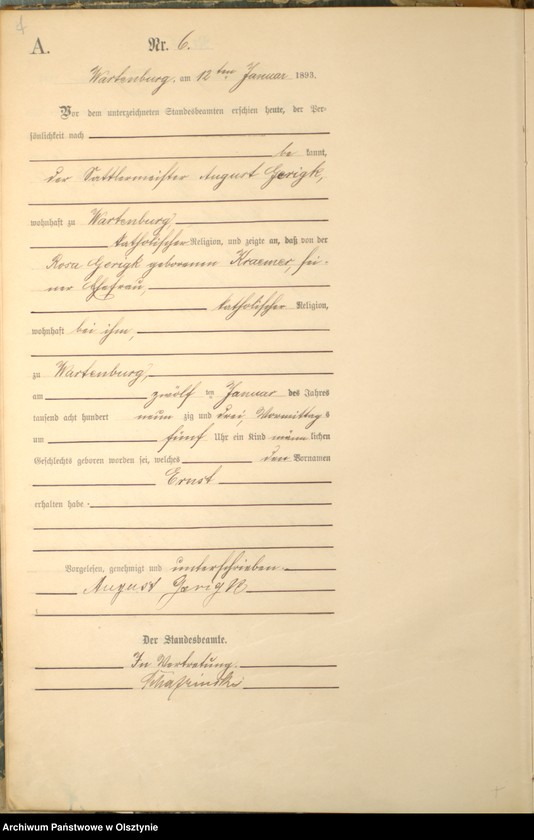 4
A. Nr. 6.
Wartenburg, am 12ten Januar 1893.
Vor dem unterzeichneten Standesbeamten erschien heute, der Per-
sönlichkeit nach
be kannt,
der Sattlermeister August Gerigk,
wohnhaft zu Wartenburg,
katholischer Religion, und zeigte an, daß von der
Rosa Gerigk geborenen Kraemer, sei-
ner Ehefrau,
katholischer Religion,
wohnhaft bei ihm,
zu Wartenburg,
am zwölf ten Januar des Jahres
tausend acht hundert neun zig und drei, Vormittag s
um fünf Uhr ein Kind männ lichen
Geschlechts geboren worden sei, welches den Vornamen
Ernst
erhalten habe.
Vorgelesen, genehmigt und unterschrieben
August Gerigk
Der Standesbeamte.
In Vertretung.
Archiwum Państwowe w Olsztynie